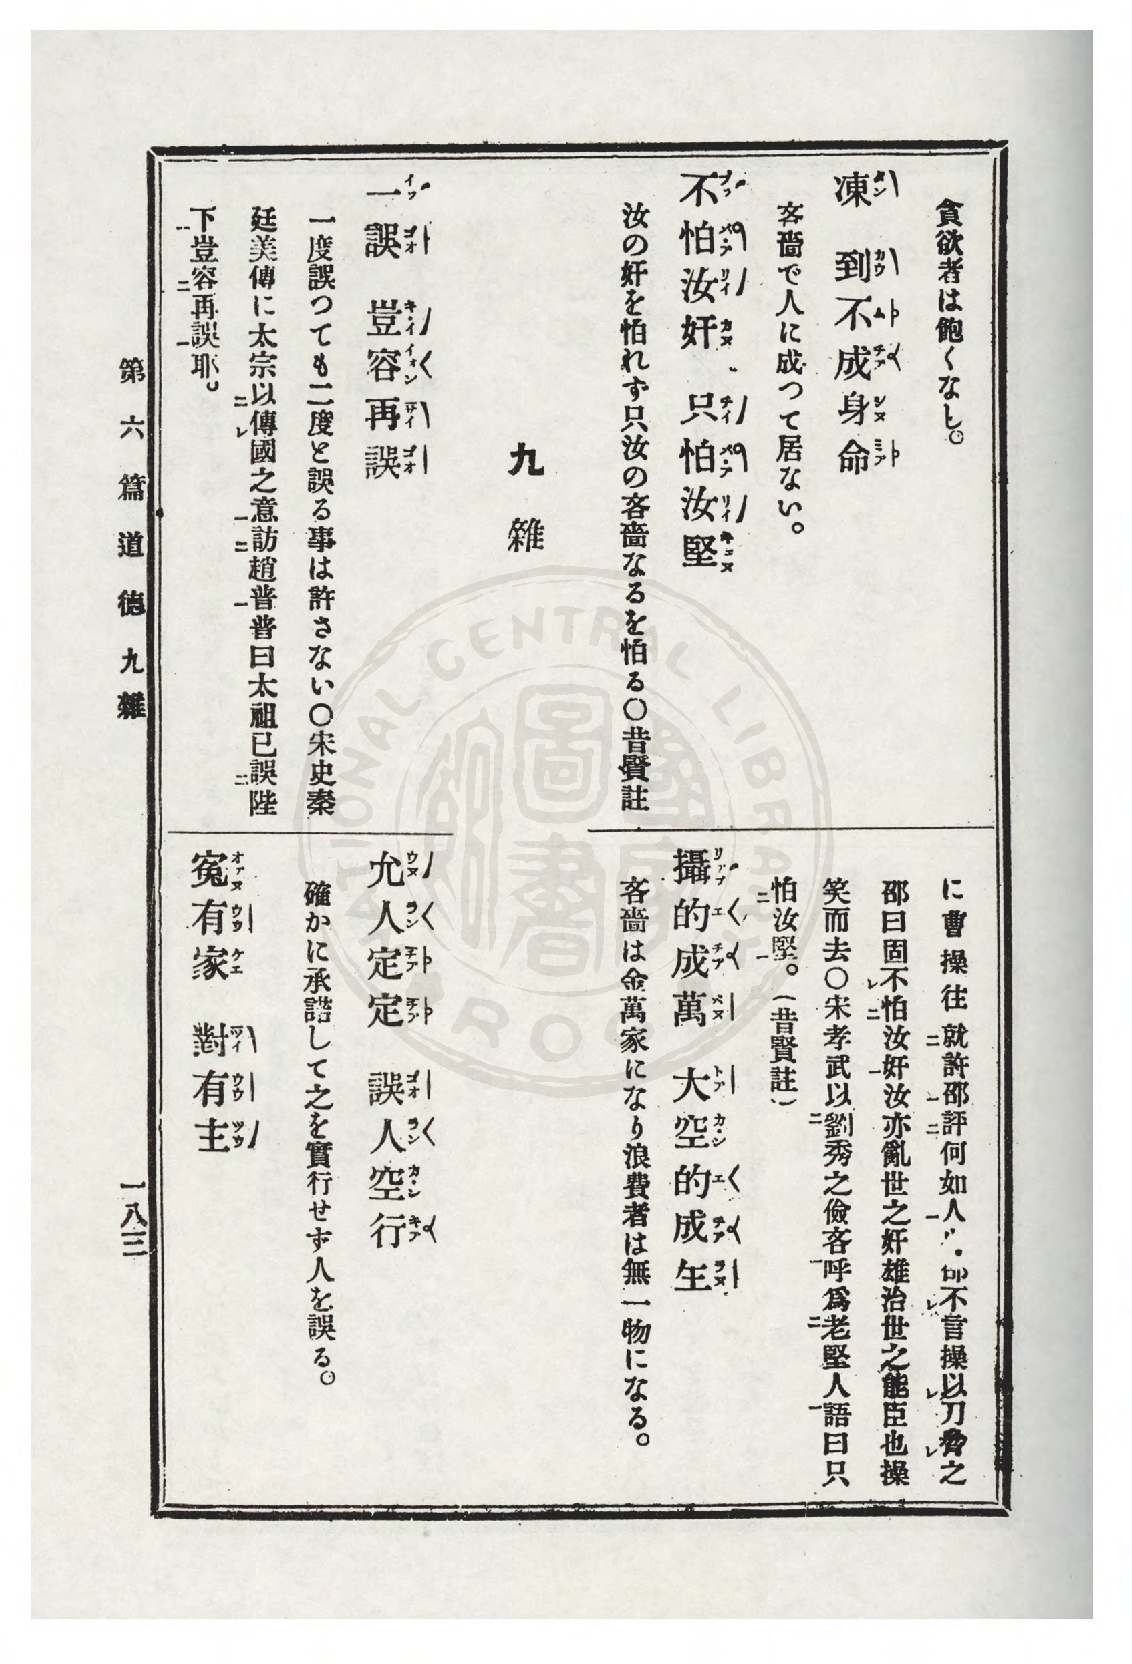 貪欲者は飽くなし。
凍 到不成身命
吝嗇で人に成つて居ない。
不怕汝奸 只怕汝堅
汝の奸を怕れず只汝の吝嗇なるを怕る〇昔賢註
に曹操往就許邵評何如人
邵不言操以刀脅之
邵曰固不怕汝奸汝亦亂世之奸雄治世之能臣也操
笑而去〇宋孝武以劉秀之儉吝呼爲老堅人語曰只
怕汝堅。(昔賢註)
攝的成萬 大空的成
吝嗇は金萬家になり浪費者は無一物になる。
九 雜
一誤 豈容再誤
一度誤つても二度と誤る事は許さない〇宋史秦
廷美傳に太宗以傳國之意訪趙普普曰太祖已誤陛
下豈容再誤耶。
允人定定 誤人空行
確かに承諾して之を實行せず人を誤る。
冤有家 對有主
第六篇 道德 九雜
一八三
NATIONAL CENTRAL LIBRARY
R O C